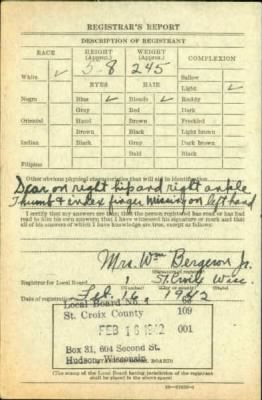 REGISTRAR'S REPORT
DESCRIPTION OF REGISTRANT
RACE HEIGHT (Approx.) WEIGHT (Approx.) COMPLEXION
5-8 245
White ✓ Sallow
EYES HAIR Light ✓
Negro Blue ✓ Blonde ✓ Ruddy
Gray Red Dark
Oriental Hazel Brown Freckled
Brown Black Light brown
Indian Black Gray Dark brown
Bald Black
Filipino
Other obvious physical characteristics that will aid in identification
on right hip and right ankle
Thumb & index finger missing on left hand
I certify that my answers are true; that the person registered has read or has had
read to him his own answers; that I have witnessed his signature or mark and that
all of his answers of which I have knowledge are true, except as follows:
Mrs. Wm Bergeson Jr.
Registrar for Local Board 1 St. Croix Wisc
Date of registration Feb. 16 1942
Local Board No. 1 98
St. Croix County 109
FEB 16 1942 001
Box 31, 604 Second St.
Hudson, Wisconsin
(The stamp of the Local Board having jurisdiction of the registrant
shall be placed in the above space)